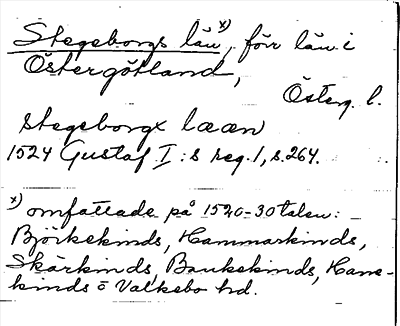 Stegeborgs län x), förr län i
Östergötland,
Österg. l.
stegeborgx læen
1524 Gustaf I:s reg. 1, s. 264.
x) omfattade på 1520-30 talen:
Björkekinds, Hammarkinds,
Skärkinds, Bankekinds, Hane-
kinds o Valkebo hd.